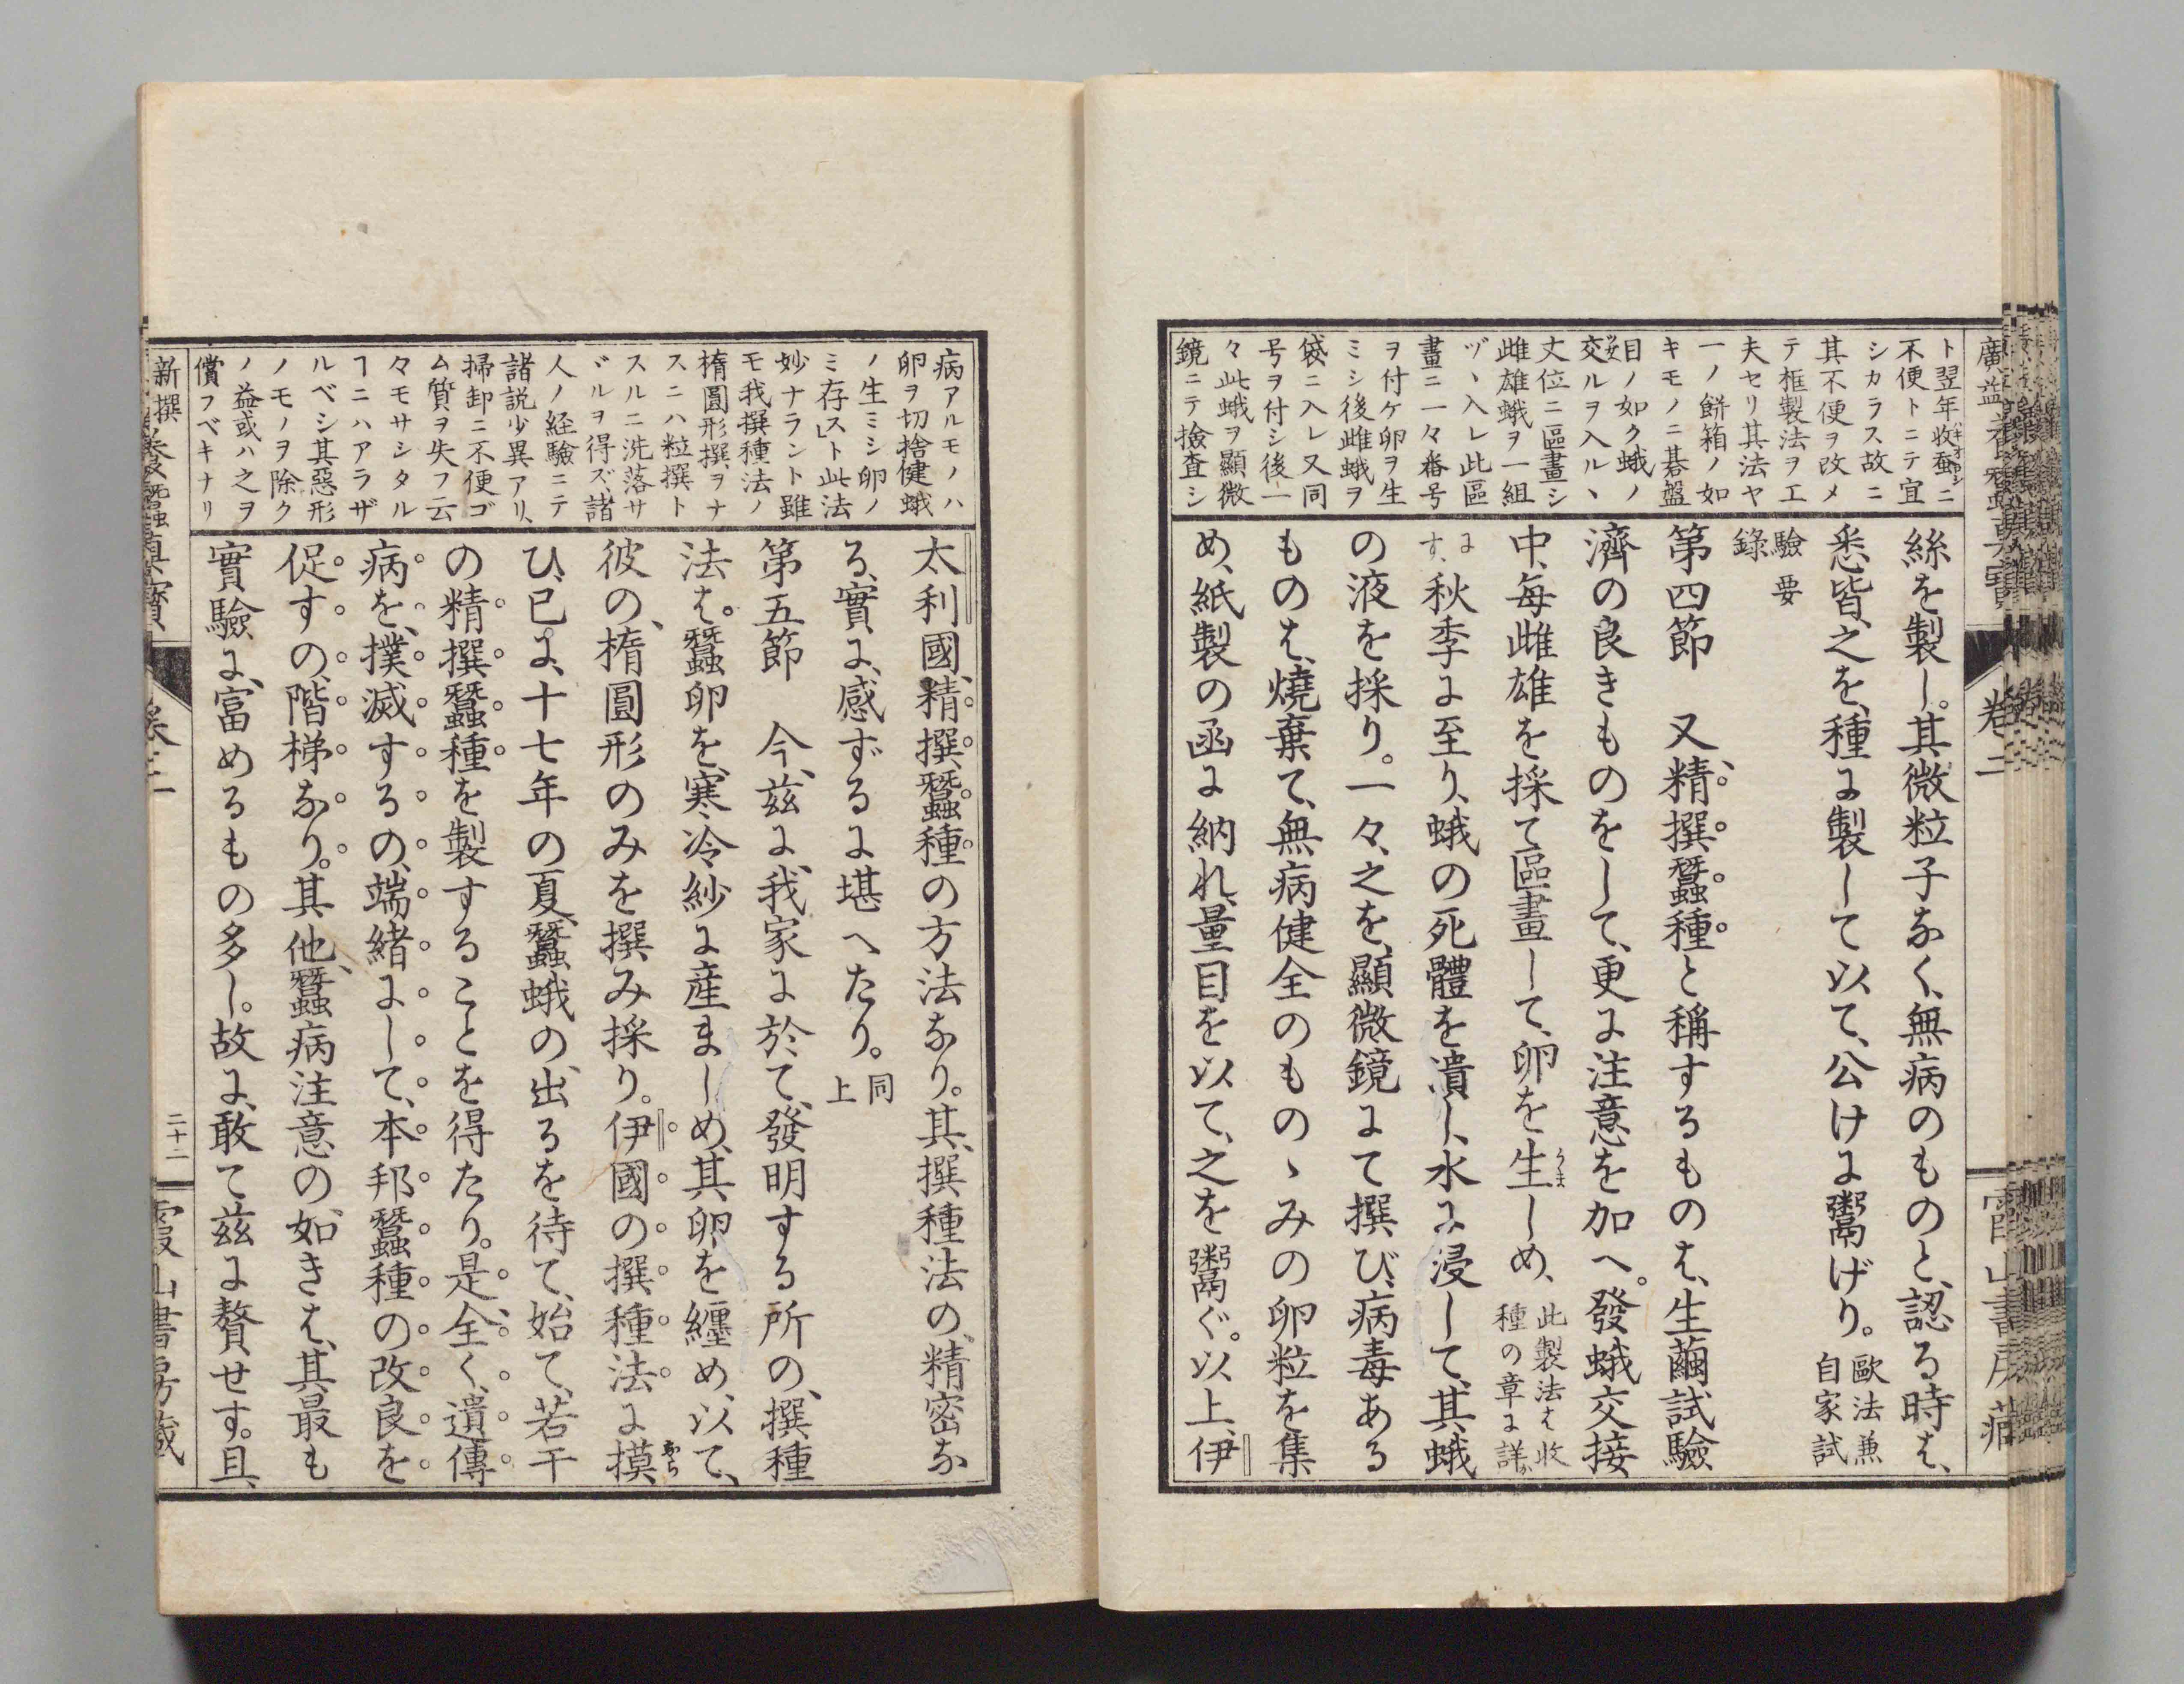 ト翌年收蚕ニ
不便トニテ宜
シカラス故ニ
其不便ヲ改メ
テ框製法ヲエ
夫セリ其法ヤ
一ノ餅箱ノ如
キモノニ碁盤
目ノ如ク蛾ノ
交ルヲ入ルヽ
丈位ニ區畫シ
雌雄蛾ヲ一組
ヅヽ入レ此區
畫ニ一々番号
ヲ付ケ卵ヲ生
ミシ後雌蛾ヲ
袋ニ入レ又同
号ヲ付シ後一
々此蛾ヲ顯微
鏡ニテ撿査シ
絲を製し。其微粒子なく、無病のものと、認る時は、
悉皆、之を、種に製して以て、公けに鬻げり。歐法兼自家試
驗要錄
第四節　又、精撰蠶種と稱するものは、生繭試驗
濟の良きものをして、更に注意を加へ。發蛾交接
中、每雌雄を採て區畫して、卵を生しめ、此製法は收種の章に詳か
にす、秋季に至り、蛾の死體を潰し、水に浸して、其蛾
の液を採り。一々、之を、顯微鏡にて撰び、病毒ある
ものは、燒棄て、無病健全のものゝみの卵粒を集
め、紙製の函に納れ、量目を以て、之を鬻ぐ。以上、伊
廣益
卷二
病アルモノハ
卵ヲ切捨健蛾
ノ生ミシ卵ノ
ミ存スト」此法
妙ナラント雖
モ我撰種法ノ
楕圓形撰ヲナ
スニハ粒撰ト
スルニ洗落サ
ヾルヲ得ズ、諸
人ノ経驗ニテ
諸説少異アリ、
掃卸ニ不便ゴ
ム質ヲ失フ云
々モサシタル
ヿニハアラザ
ルベシ其惡形
ノモノヲ除ク
ノ益或ハ之ヲ
償フベキナリ
太利國、精撰蠶種の方法なり。其、撰種法の、精密な
る、實に、感ずるに堪へたり。同上
第五節　今、茲に、我家に於て、發明する所の、撰種
法は。蠶卵を、寒冷紗に産ましめ、其卵を纏め、以て、
彼の、楕圓形のみを撰み採り。伊國の撰種法に摸
ひ、已に、十七年の夏、蠶蛾の、出るを待て、始て、若干
の精撰蠶種を製することを得たり。是、全く、遺傳
病を、撲滅するの、端緖にして、本邦蠶種の改良を
促すの、階梯なり。其他、蠶病注意の、如きは、其最も
實驗に、富めるもの多し。故に、敢て茲に贅せす。且
新撰
二十二
霞山書房藏